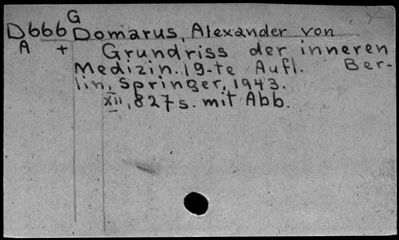 G
D666 Domarus, Alexander von
A + Grundriss der inneren
Medizin. 19-te Aufl. Ber-
lin, Springer, 1943.
xii, 827 s. mit Abb.